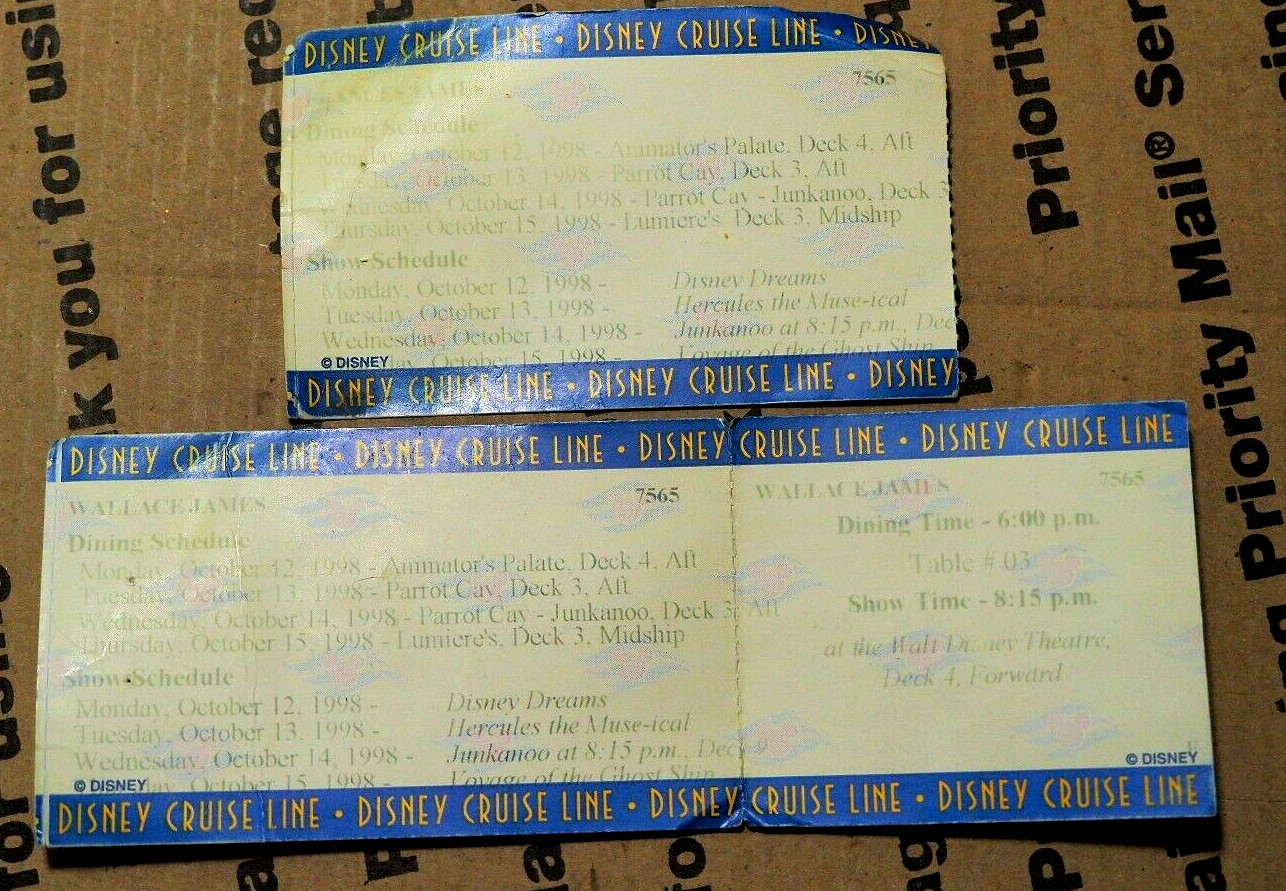 DISNEY CRUISE LINE • DISNEY CRUISE LINE • DISNEY
7565
FRANCES JAMES
Dining Schedule
Monday, October 12, 1998 - Animator's Palate, Deck 4, Aft
Tuesday, October 13, 1998 - Parrot Cay, Deck 3, Aft
Wednesday, October 14, 1998 - Parrot Cay - Junkanoo, Deck 3
Thursday, October 15, 1998 - Lumiere's, Deck 3, Midship
Show Schedule
Monday, October 12, 1998 - Disney Dreams
Tuesday, October 13, 1998 - Hercules the Muse-ical
Wednesday, October 14, 1998 - Junkanoo at 8:15 p.m., Dec
October 15, 1998 - Voyage of the Ghost Ship
© DISNEY
DISNEY CRUISE LINE • DISNEY CRUISE LINE • DISNEY
DISNEY CRUISE LINE • DISNEY CRUISE LINE • DISNEY CRUISE LINE • DISNEY CRUISE LINE
7565
WALLACE JAMES
Dining Schedule
Monday, October 12, 1998 - Animator's Palate, Deck 4, Aft
Tuesday, October 13, 1998 - Parrot Cay, Deck 3, Aft
Wednesday, October 14, 1998 - Parrot Cay - Junkanoo, Deck 3, Aft
Thursday, October 15, 1998 - Lumiere's, Deck 3, Midship
Show Schedule
Monday, October 12, 1998 - Disney Dreams
Tuesday, October 13, 1998 - Hercules the Muse-ical
Wednesday, October 14, 1998 - Junkanoo at 8:15 p.m., Deck 9
October 15, 1998 - Voyage of the Ghost Ship
© DISNEY
WALLACE JAMES 7565
Dining Time - 6:00 p.m.
Table # 03
Show Time - 8:15 p.m.
at the Walt Disney Theatre,
Deck 4, Forward
© DISNEY
DISNEY CRUISE LINE • DISNEY CRUISE LINE • DISNEY CRUISE LINE • DISNEY CRUISE LINE
you for using
Priority
Priority Mail® Ser